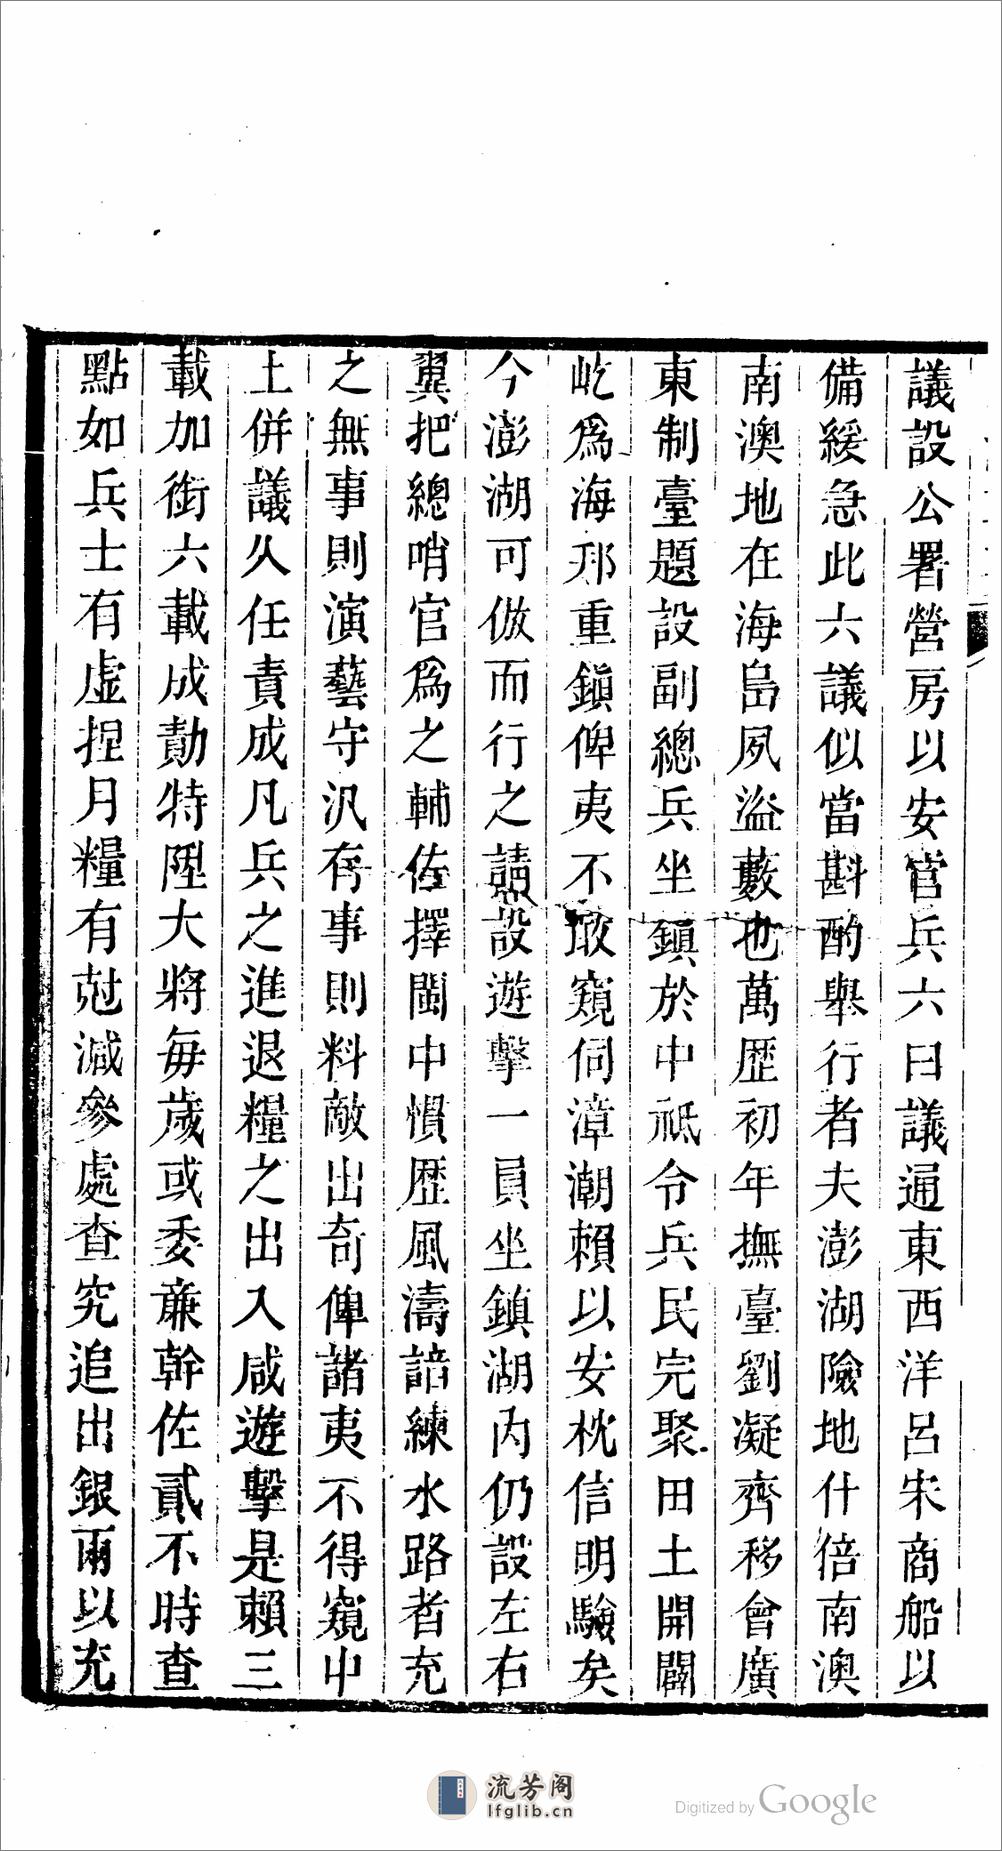 議設公署營房以安官兵六曰議通東西洋呂宋商船以
備緩急此六議似當斟酌舉行者夫澎湖險地什倍南澳
南澳地在海島夙盜藪也萬歷初年撫臺劉凝齊移會廣
東制臺題設副總兵坐鎮於中祗令兵民完聚田土開闢
屹爲海邦重鎮俾夷不敢窺伺漳潮賴以安枕信明驗矣
今澎湖可倣而行之請設遊擊一員坐鎮湖內仍設左右
翼把總哨官爲之輔佐擇閩中慣歷風濤諳練水路者充
之無事則演藝守汛存事則料敵出奇俾諸夷不得窺中
土併議久任責成凡兵之進退糧之出入咸遊擊是賴三
載加銜六載成勣特陞大將每歲或委亷幹佐貳不時查
點如兵士有虛捏月糧有尅減參處查究追出銀兩以充
流芳阁
lfglib.cn
Digitized by Google